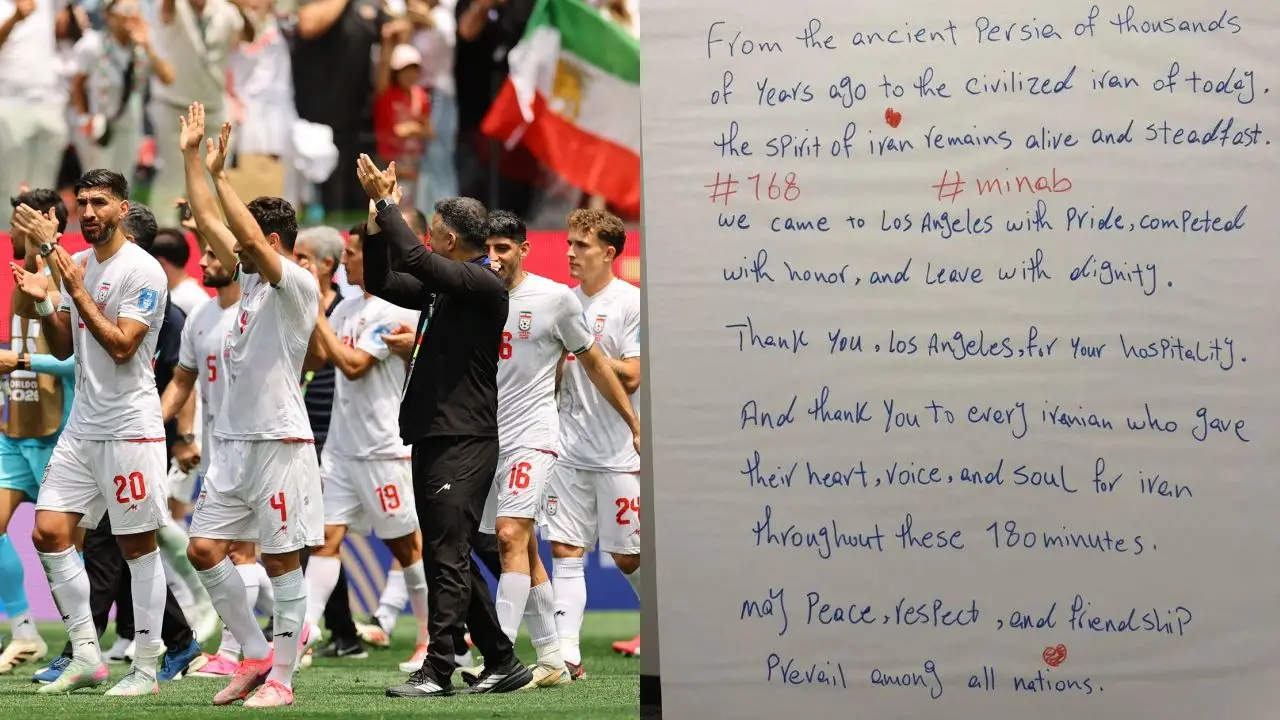 20
5
4
19
6
16
24
WORLD
2026
From the ancient Persia of thousands
of Years ago to the civilized iran of today.
the spirit of iran remains alive and steadfast.
#168 #minab
we came to Los Angeles with Pride, competed
with honor, and Leave with dignity.
Thank You, Los Angeles, for Your hospitality.
And thank You to every iranian who gave
their heart, voice, and soul for iran
throughout these 180 minutes.
may Peace, respect, and friendship
Prevail among all nations.